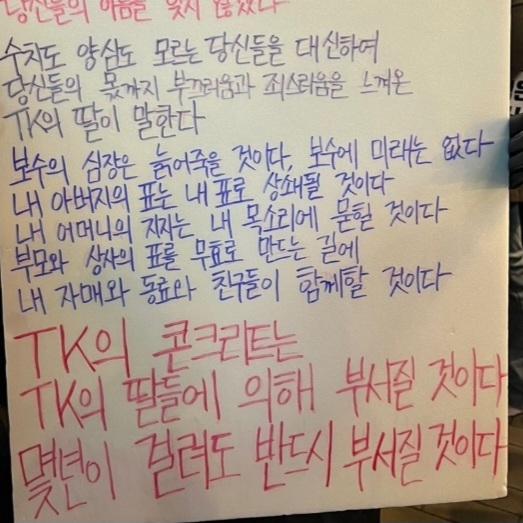 당신들의 이름을 잊지 않았다
수치도 양심도 모르는 당신들을 대신하여
당신들의 몫까지 부끄러움과 죄스러움을 느껴온
TK의 딸이 말한다
보수의 심장은 늙어죽을 것이다, 보수에 미래는 없다
내 아버지의 표는 내 표로 상쇄될 것이다
내 어머니의 지지는 내 목소리에 묻힐 것이다
부모와 상사의 표를 무효로 만드는 길에
내 자매와 동료와 친구들이 함께할 것이다
TK의 콘크리트는
TK의 딸들에 의해 부서질 것이다
몇년이 걸려도 반드시 부서질 것이다